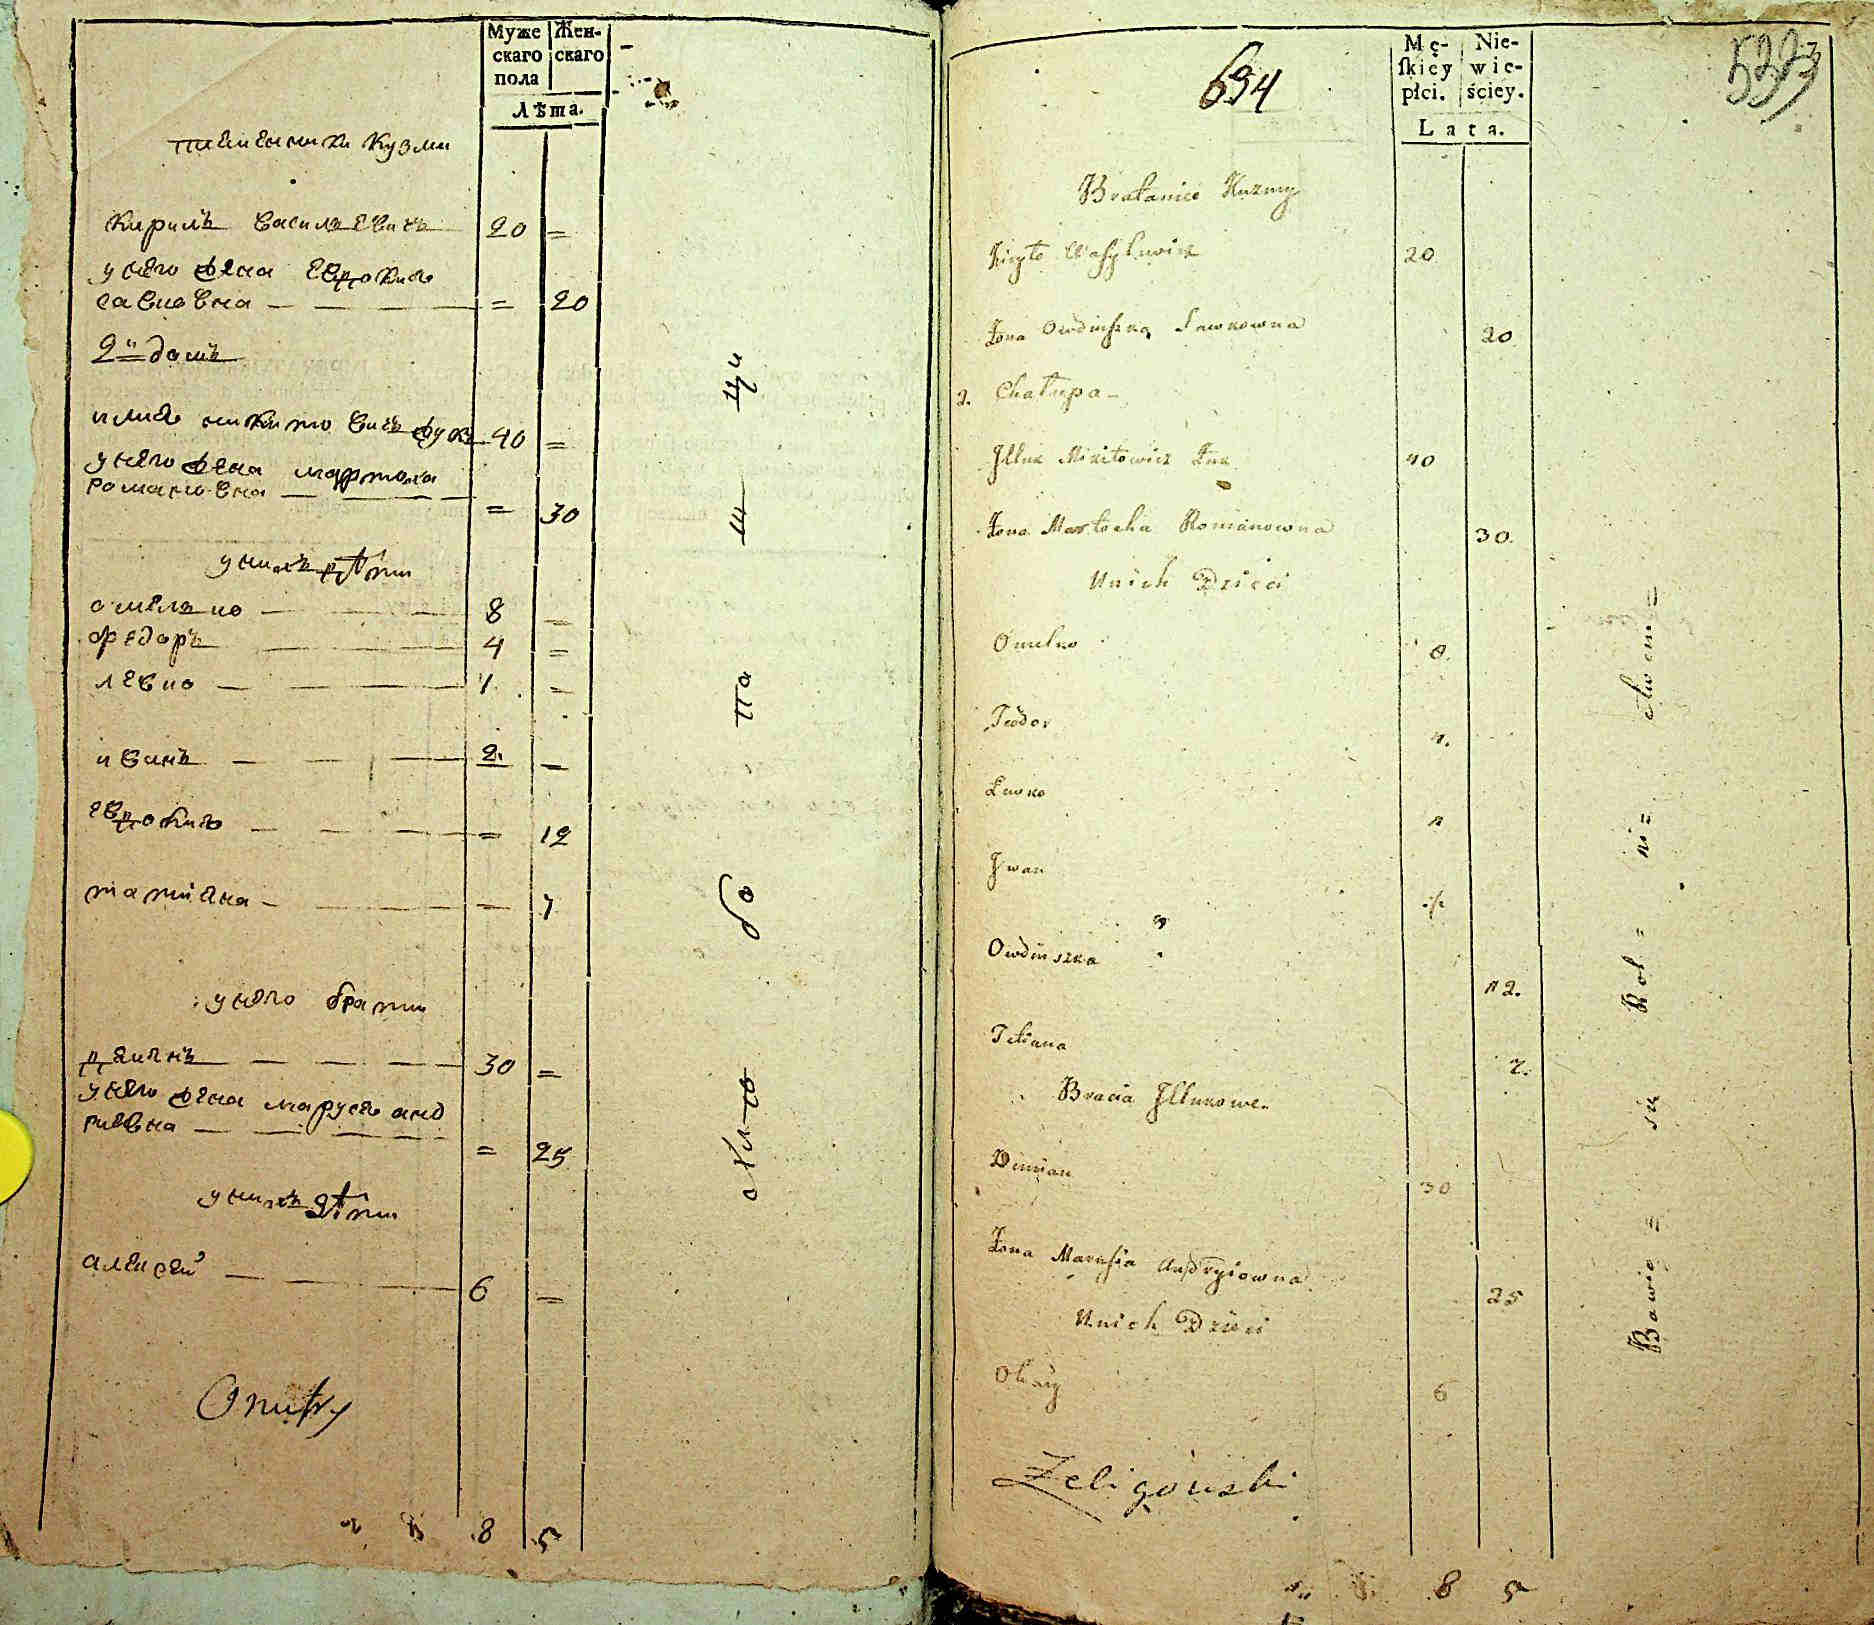 Муже Жен-
скаго скаго
пола
Лѣта.
племеники Кузми
Кирилъ Василевичъ 20 =
у него жена Евдокия
Савковна — = 20
2й домъ
илия никитовичъ жукъ 40 =
у него жена мартоха
романовна — = 30
у нихъ дѣти
омелко — 8 =
федоръ — 4 =
левко — 1 =
иванъ — 2 =
евдокия — = 12
татияна — 7
у него брати
демянъ — 30 =
у него жена маруся анд
риевна — = 25
у нихъ дѣти
алексей — 6 =
8 5
694
Mę- Nie-
ſkiey wie-
płci. ściey.
Lata.
Bratanice Kuzmy
Kiryło Wasylewicz 20
Żona Owdiuszka Sawkowna 20
2. Chałupa
Illuk Mikitowicz Żuk 40
Żona Martocha Romanowna 30
Unich Dzieci
Omelko 8
Fedor 4.
Lewko 1
Iwan 2
Owdiuszka 12.
Tetiana 7.
Bracia Illukowe.
Demian 30
Żona Marusia Andryiowna 25
Unich Dzieci
Olexiy 6
Żeligowski
8 5
Bawio = sie Rol = ni = ctwem =